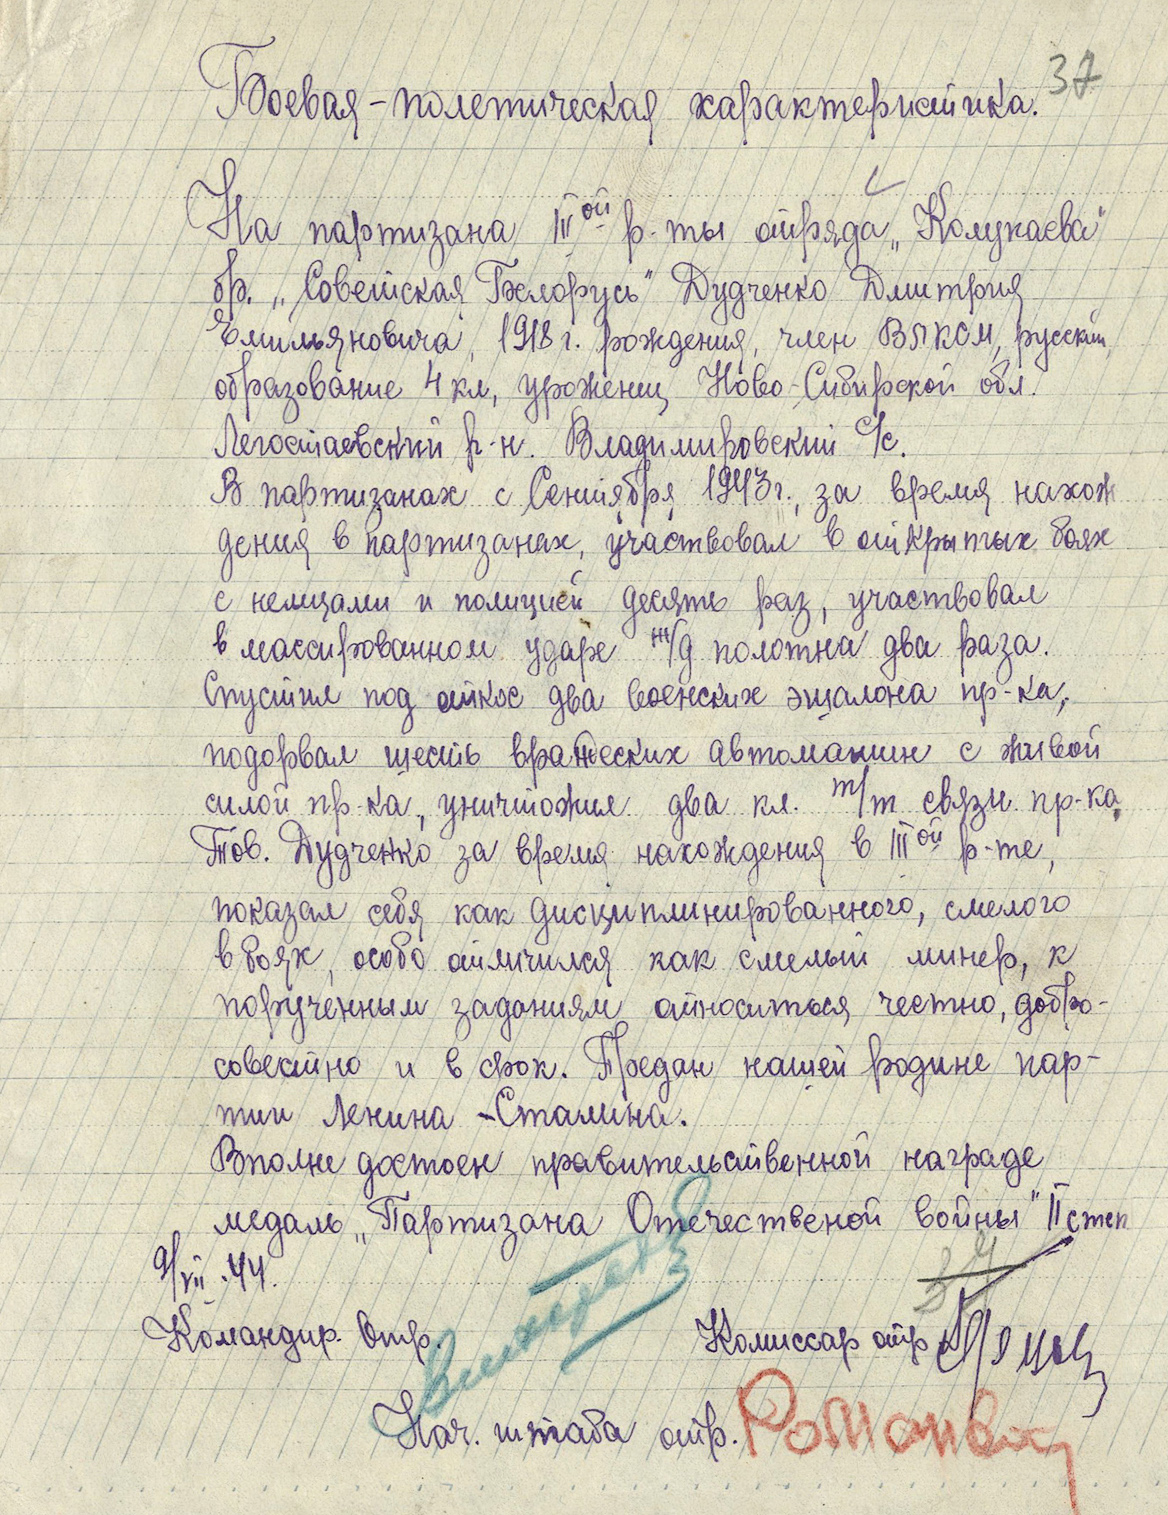 37
Боевая-полетическая характеристика.
На партизана III ой р-ты отряда „Колункаева"
бр. „Советская Белорусь" Дудченко Дмитрия
Емильяновича, 1918 г. рождения, член ВЛКСМ, русский
образование 4 кл, уроженец Ново-Сибирской обл.
Легостаевский р-н. Владимировский с/с.
В партизанах с Сентября 1943 г., за время нахож
дения в партизанах, участвовал в открытых боях
с немцами и полицией десять раз, участвовал
в массированном ударе ж/д полотна два раза.
Спустил под откос два военских эшалона пр-ка,
подорвал шесть вражеских автомашин с живой
силой пр-ка, уничтожил два кл. т/т связи пр-ка.
Тов. Дудченко за время нахождения в III ой р-те,
показал себя как дисциплинированного, смелого
в боях, особо отличился как смелый минер, к
порученным заданиям относиться честно, добро-
совестно и в срок. Предан нашей родине пар-
тии Ленина-Сталина.
Вполне достоен правительственной награде
медаль „Партизана Отечественой войны" II степ
9/VII.44.
Командир. Отр.
Комиссар отр
Нач. штаба отр. Романович